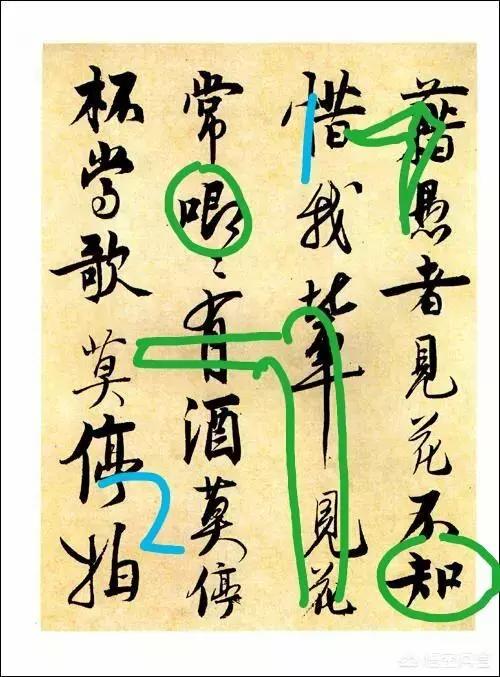 藉愚者見花不知
惜我輩見花
常唧〻有酒莫停
杯當歌莫停拍
悟空问答